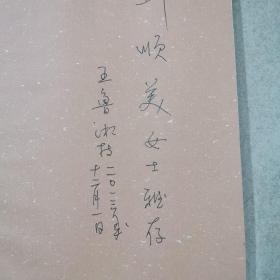 顺美女士雅存
王鲁湘
二〇一三年
十二月一日